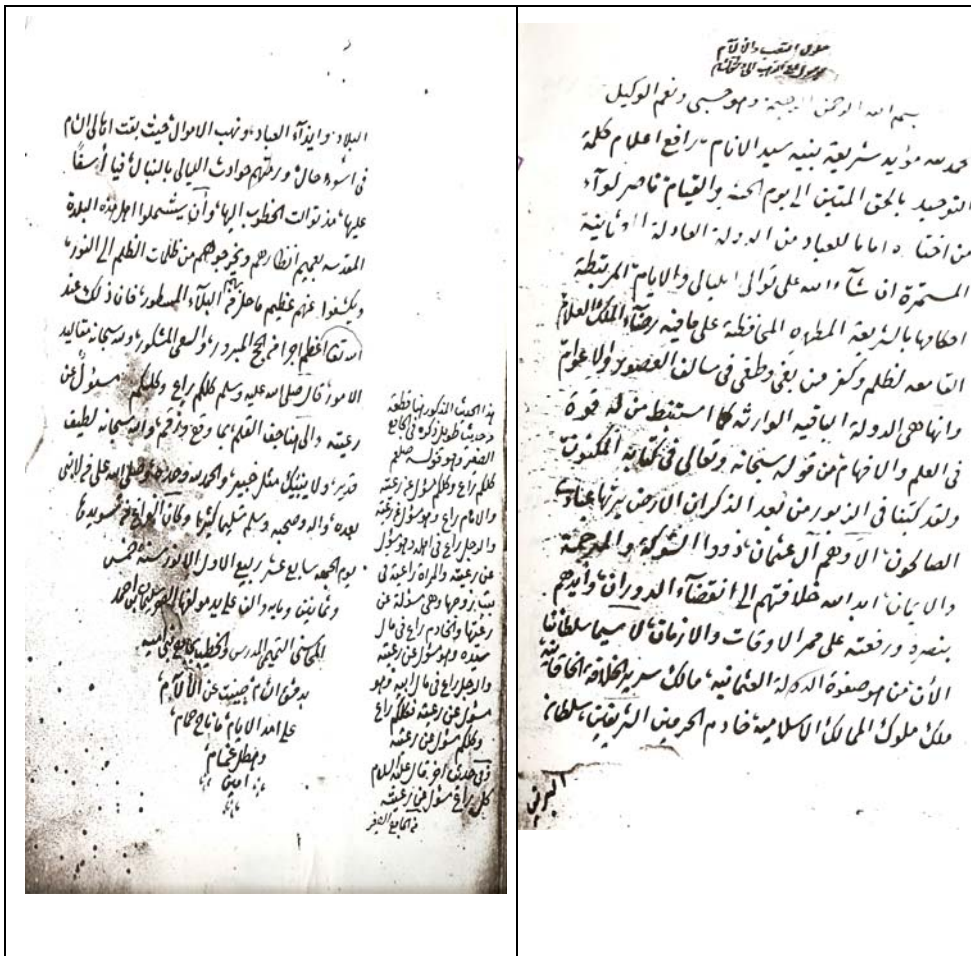 بسم الله الرحمن الرحيم وهو حسبي ونعم الوكيل
حمد لله مؤيد شريعة نبيه سيد الانام رافع اعلام كلمة
التوحيد بالحق المتين الى يوم والقيام ناصر لوآء
من للعباد من الدولة العادلة
المستمرة ان شآء الله على توالي الليالي والايام المرتبطة
احكامها بالشريعة المطهره المحافظة على مافيه رضآء الملك العلام
القامعه لظلم وكفر من بغى وطغى في سالف العصور والاعوام
وانها هي الدولة الباقيه الوارثه كما استنبط من له قوة
في العلم والافهام من قوله سبحانه وتعالى في كتابه المكنون
ولقد كتبنا في الزبور من بعد الذكر ان الارض يرثها عبادي
الصالحون الا وهم آل عثمان ذووا الشوكة
والايمان ابد الله خلافتهم الى انقضآء الدوران وايدهم
بنصره ورفعته على ممر الاوقات والازمان لا سيما سلطاننا
الأن من هو صفوة الدولة العثمانيه مالك سرير الخلافة الخاقانيه
ملك ملوك الممالك الاسلاميه خادم الحرمين الشريفين سلطان
البرين
البلاد وايذآء العباد ونهب الاموال حيث بقت اهالي الشام
في اسوء حال ورمتهم حوادث الليالي بالنبال فيا أسفًا
عليها مذ توالت الخطوب اليها وأن يشملوا اهل هذه البلدة
المقدسه بعميم انظارهم ويخرجوهم من ظلمات الظلم الى النور
ويكشفوا عنهم عظيم ماحل من البلآء المسطور فان ذلك عند
الله تعا اعظم اجرا من الحج المبرور والسعي المشكور ولله سبحانه مقاليد
الامور قال صلى الله عليه وسلم كلكم راع وكلكم مسؤل عن
رعيته والى هنا جف القلم بما وقع ورقم والله سبحانه لطيف
قدير ولا ينبئك مثل خبير والحمد لله وحده وصلى الله على من لا نبي
بعده واله وصحبه وسلم تسليما كثيرا وكان الفراغ من تسويدها
يوم الجمعه سابع عشر ربيع الاول الانور سنة خمس
وثمانين ومايه والف على يد مولفها سليمان بن احمد
المحاسني التميمي المدرس والخطيب بجامع بني اميه
بدمشق الشام صينت عن الآلام
على امد الايام ما ناح حمام
وهطل غمام
امين
هذا الحديث المذكور هنا قطعة
من حديث طويل ذكره في الجامع
الصغير وهو قوله صلعم
كلكم راع وكلكم مسؤل عن رعيته
والامام راع وهو مسؤل عن رعيته
والرجل راع في اهله وهو مسؤل
عن رعيته والمراة راعية في
بيت زوجها وهي مسؤلة عن
رعيتها والخادم راع في مال
سيده وهو مسؤل عن رعيته
والرجل راع في مال ابيه وهو
مسؤل عن رعيته فكلكم راع
وكلكم مسؤل عن رعيته
وفي حديث اخر قال عليه السلام
كل راع مسؤل عن رعيته
من الجامع الصغير